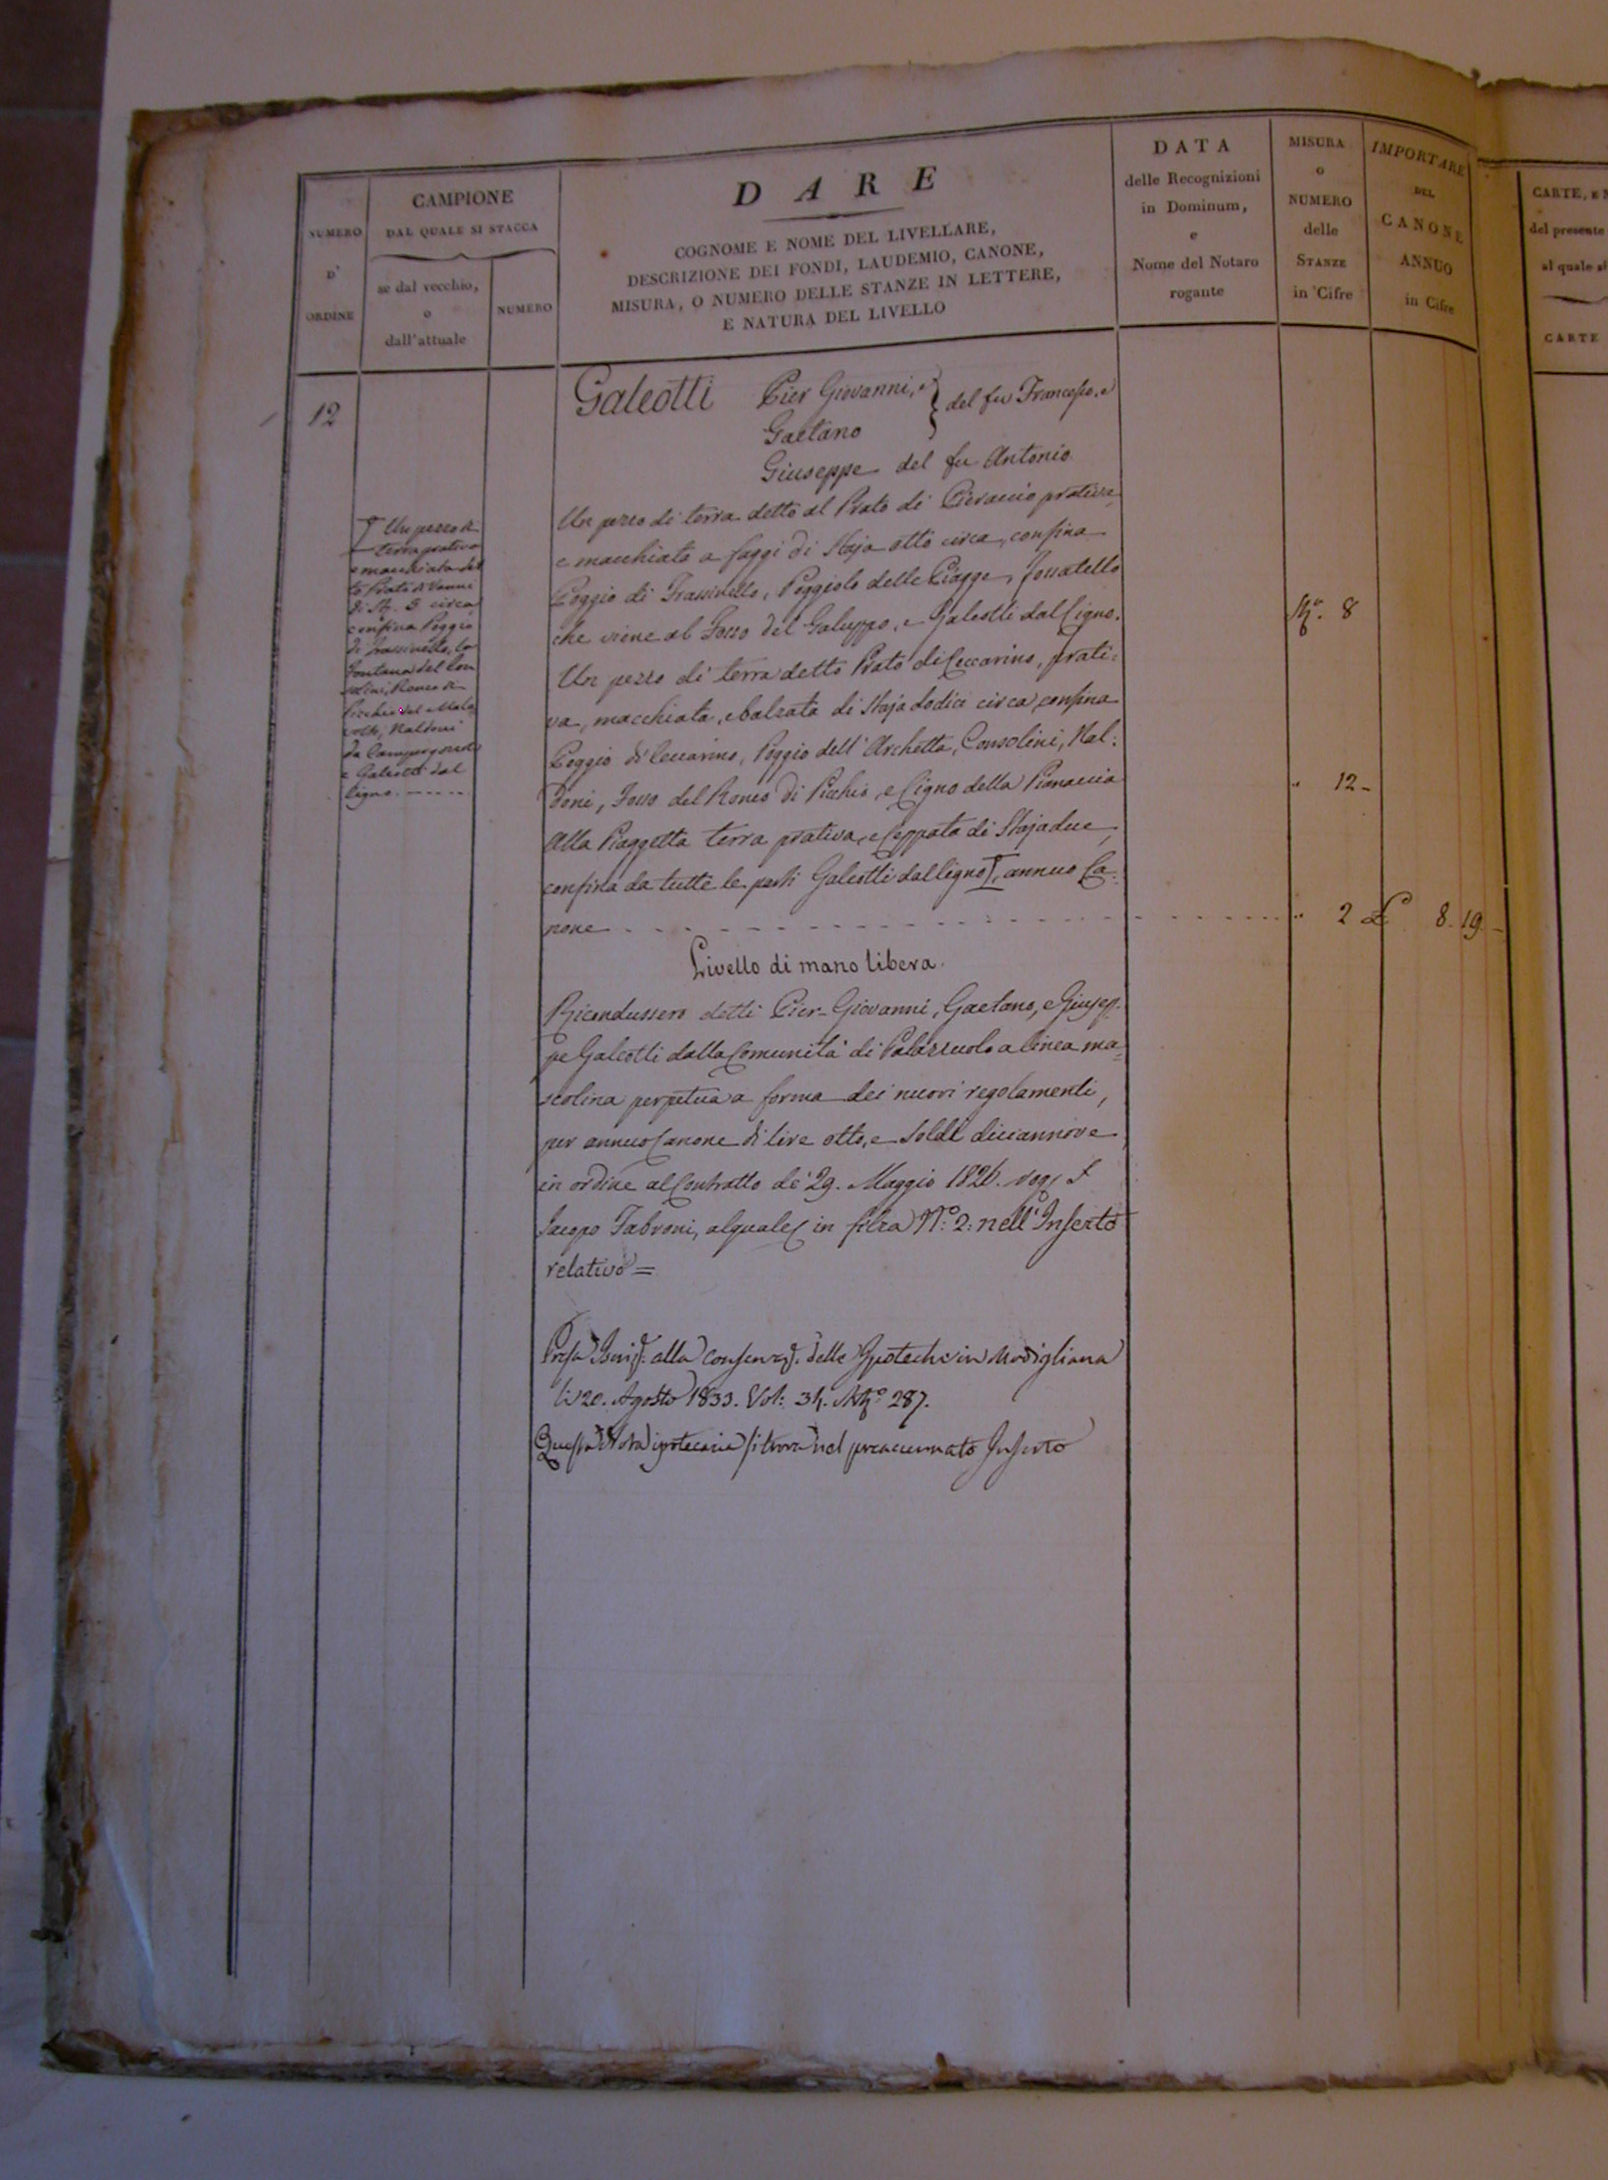 NUMERO
D'
ORDINE
CAMPIONE
DAL QUALE SI STACCA
se dal vecchio,
o
dall'attuale
NUMERO
DARE
COGNOME E NOME DEL LIVELLARE,
DESCRIZIONE DEI FONDI, LAUDEMIO, CANONE,
MISURA, O NUMERO DELLE STANZE IN LETTERE,
E NATURA DEL LIVELLO
DATA
delle Recognizioni
in Dominum,
e
Nome del Notaro
rogante
MISURA
o
NUMERO
delle
STANZE
in Cifre
IMPORTARE
DEL
CANONE
ANNUO
in Cifre
CARTE, E N
del presente
al quale si
CARTE
12
Galeotti Pier Giovanni, e
Gaetano } del fu Francesco, e
Giuseppe del fu Antonio
Un pezzo di terra detto al Prato di Pieraccio prativa,
e macchiata a faggi di Staja otto circa, confina
Poggio di Frassinello, Poggiolo delle Piagge, fossatello
che viene al Fosso del Galuppo, e Galeotti dal Cigno.
Sta. 8
Un pezzo di terra detto Prato di Ceccarino, prati:
va, macchiata, e balzata di Staja dodici circa, confina
Poggio di Ceccarino, Poggio dell'Archetta, Consolini, Nal:
doni, Fosso del Ronco di Picchio, e Cigno della Pianaccia
" 12 -
Alla Piaggetta terra prativa, e Ceppata di Staja due,
confina da tutte le parti Galeotti dal Cigno, annuo Ca:
none - - - " 2 £ 8. 19 -
Un pezzo di
terra prativa
e macchiata det
to Prato di Vanni
di St. 5 circa
confina Poggio
di Frassinello, la
Fontana del Con
solini, Ronco di
Picchio del Mala
volti, Naldoni
da Campergozzole
e Galeotti dal
Cigno. - - - - -
Livello di mano libera.
Ricondussero detti Pier-Giovanni, Gaetano, e Giusep-
pe Galeotti dalla Comunità di Palazzuolo a linea ma-
scolina perpetua a forma dei nuovi regolamenti,
per annuo Canone di lire otto, e soldi diciannove
in ordine al Contratto de' 29. Maggio 1826. rog. S
Jacopo Fabroni, al quale in filza N.° 2: nell'Inserto
relativo =
Presa Iscriz. alla Conservaz. delle Ipoteche in Modigliana
li 20. Agosto 1833. Vol: 34. Art.° 287.
Questa Nota ipotecaria si trova nel preaccennato Inserto